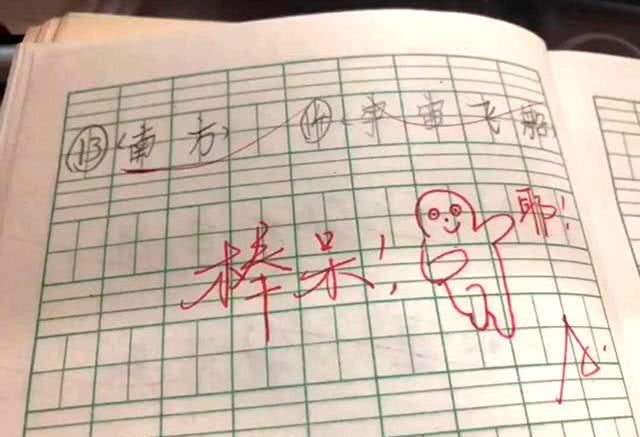 ⑬(南方) ⑭(宇宙飞船)
棒呆! 耶!
A.